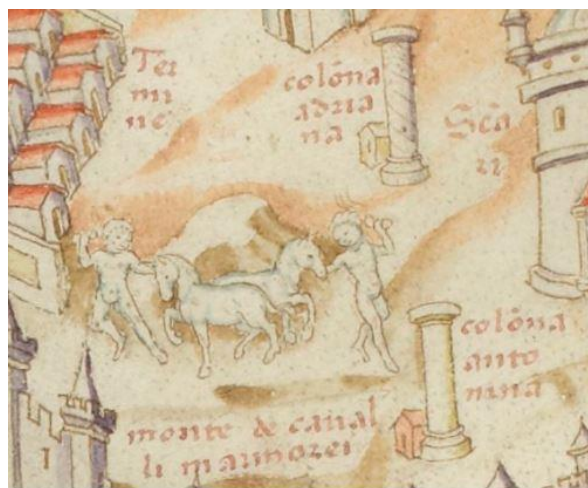 Ter
mi
ne
colōna
adria
na
Scā
colōna
anto
nina
monte de caual
li marmorei